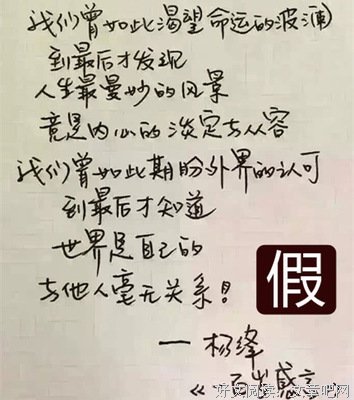 我们曾如此渴望命运的波澜
到最后才发现
人生最曼妙的风景
竟是内心的淡定与从容
我们曾如此期盼外界的认可
到最后才知道
世界是自己的
与他人毫无关系!
假
一杨绛
《百岁感言